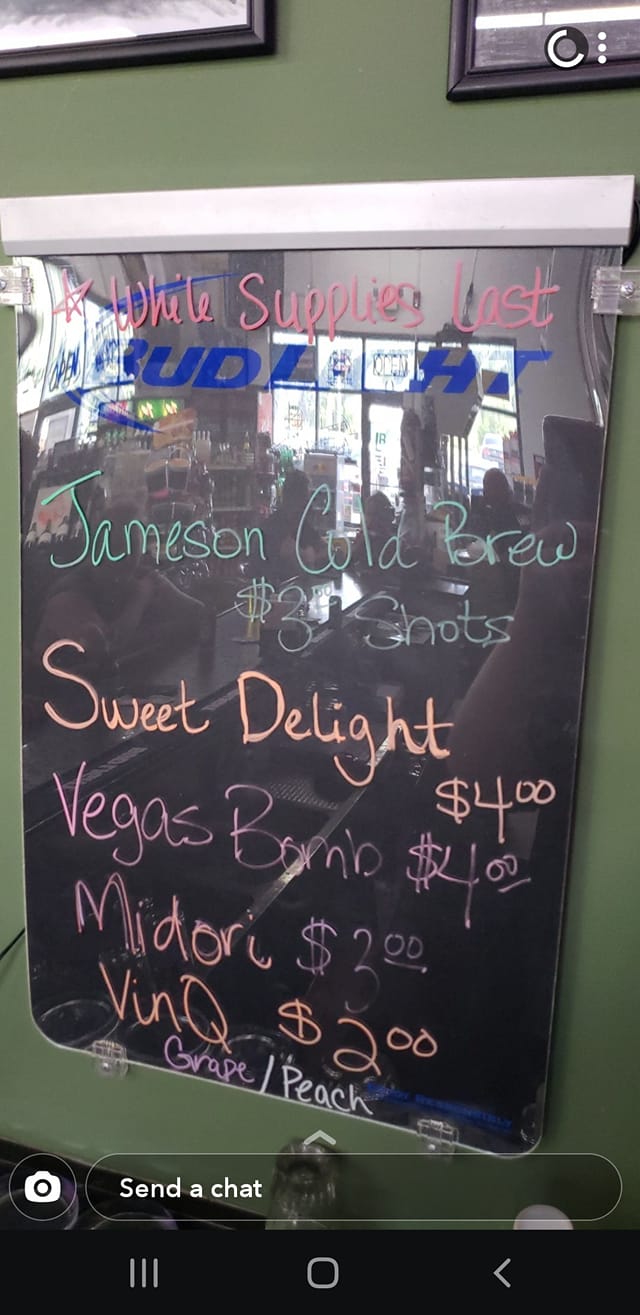 ☆ While Supplies Last
BUD LIGHT
OPEN
Jameson Cold Brew
$3.00 Shots
Sweet Delight
$4.00
Vegas Bomb $4.00
Midori $3.00
VinQ $2.00
Grape / Peach
Send a chat